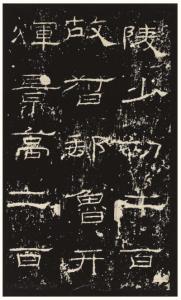 陵少初二百
故督郵魯开
煇景高二百